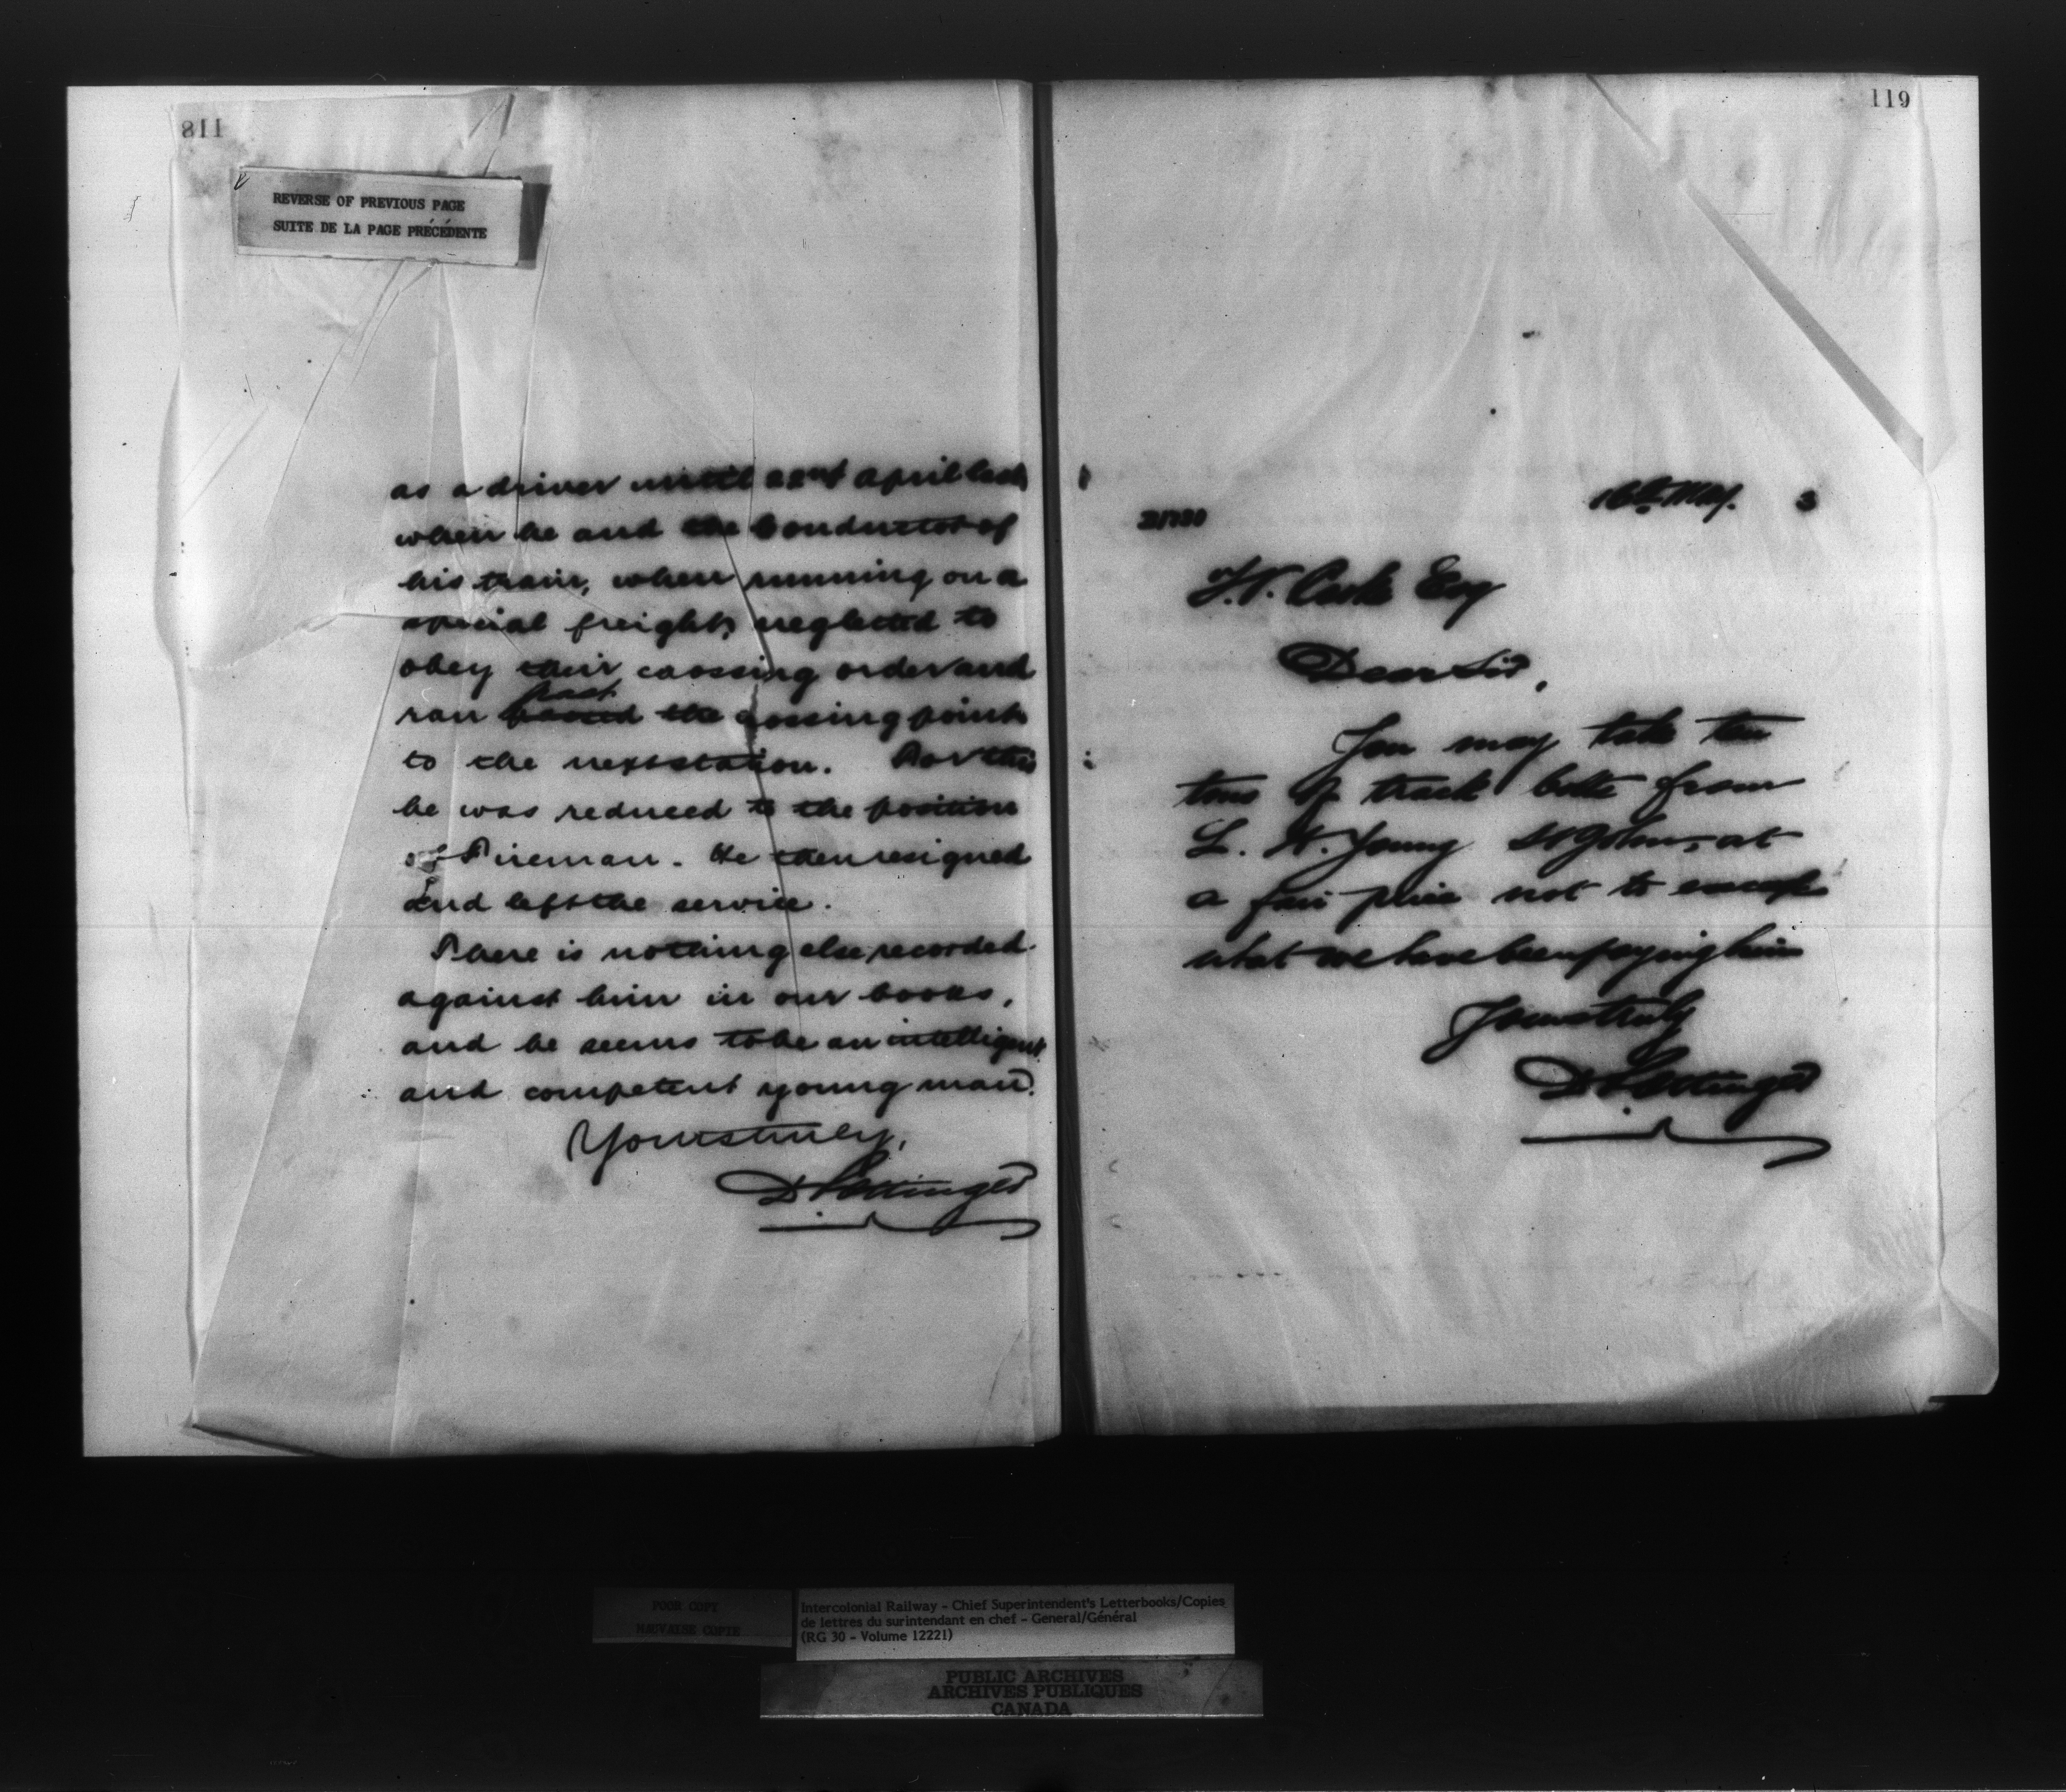 118
REVERSE OF PREVIOUS PAGE
SUITE DE LA PAGE PRÉCÉDENTE
as a driver until 22nd April last
when he and the Conductor of
his train, when running on a
special freight, neglected to
obey their crossing order and
ran past passed the crossing point
to the next station. For this
he was reduced to the position
of Fireman. He then resigned
and left the service.
There is nothing else recorded
against him in our books,
and he seems to be an intelligent
and competent young man.
Yours truly,
D Pottinger
119
16th May. 3
T.V. Cooke Esq
Dear Sir,
You may take ten
tons of track bolts from
L. H. Young St John, at
a fair price not to exceed
what we have been paying him
Yours truly
D Pottinger
POOR COPY
MAUVAISE COPIE
Intercolonial Railway - Chief Superintendent's Letterbooks/Copies
de lettres du surintendant en chef - General/Général
(RG 30 - Volume 12221)
PUBLIC ARCHIVES
ARCHIVES PUBLIQUES
CANADA